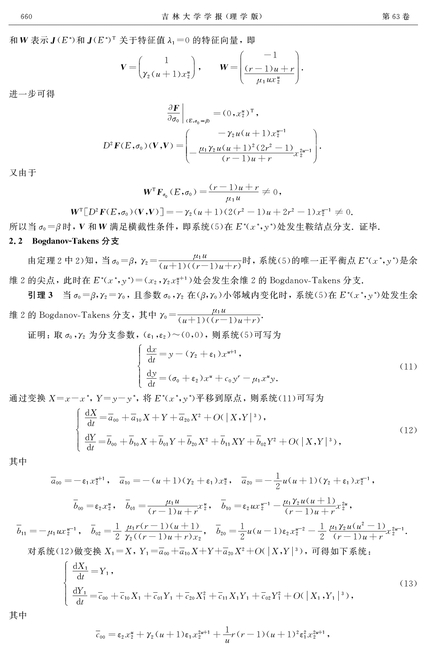 660 吉 林 大 学 学 报 (理 学 版) 第 63 卷
和 W 表示 J(E*)和 J(E*)ᵀ 关于特征值 λ₁=0 的特征向量, 即
V = (1; γ₂(u+1)x₂ᵘ), W = (−1; ((r−1)u+r)/(μ₁ux₂ᵘ)).
进一步可得
∂F/∂σ₀ |(E,σ₀=β) = (0,x₂ᵘ)ᵀ,
D²F(E,σ₀)(V,V) = (−γ₂u(u+1)x₂ᵘ⁻¹; −(μ₁γ₂u(u+1)²(2r²−1))/((r−1)u+r) x₂²ᵘ⁻¹).
又由于
WᵀF_σ₀(E,σ₀) = ((r−1)u+r)/(μ₁u) ≠ 0,
Wᵀ[D²F(E,σ₀)(V,V)] = −γ₂(u+1)(2(r²−1)u+2r²−1)x₂ᵘ⁻¹ ≠ 0.
所以当 σ₀=β 时, V 和 W 满足横截性条件, 即系统(5)在 E*(x*,y*)处发生鞍结点分支. 证毕.
2.2 Bogdanov-Takens 分支
由定理 2 中 2)知, 当 σ₀=β, γ₂=μ₁u/((u+1)((r−1)u+r)) 时, 系统(5)的唯一正平衡点 E*(x*,y*)是余
维 2 的尖点, 此时在 E*(x*,y*)=(x₂,γ₂x₂ᵘ⁺¹)处会发生余维 2 的 Bogdanov-Takens 分支.
引理 3 当 σ₀=β,γ₂=γ₀, 且参数 σ₀,γ₂ 在(β,γ₀)小邻域内变化时, 系统(5)在 E*(x*,y*)处发生余
维 2 的 Bogdanov-Takens 分支, 其中 γ₀=μ₁u/((u+1)((r−1)u+r)).
证明: 取 σ₀,γ₂ 为分支参数, (ε₁,ε₂)~(0,0), 则系统(5)可写为
{ dx/dt = y−(γ₂+ε₁)xᵘ⁺¹,
dy/dt = (σ₀+ε₂)xᵘ+c₀yʳ−μ₁xᵘy. (11)
通过变换 X=x−x*, Y=y−y*, 将 E*(x*,y*)平移到原点, 则系统(11)可写为
{ dX/dt = a̅₀₀+a̅₁₀X+Y+a̅₂₀X²+O(|X,Y|³),
dY/dt = b̅₀₀+b̅₁₀X+b̅₀₁Y+b̅₂₀X²+b̅₁₁XY+b̅₀₂Y²+O(|X,Y|³), (12)
其中
a̅₀₀=−ε₁x₂ᵘ⁺¹, a̅₁₀=−(u+1)(γ₂+ε₁)x₂ᵘ, a̅₂₀=−½u(u+1)(γ₂+ε₁)x₂ᵘ⁻¹,
b̅₀₀=ε₂x₂ᵘ, b̅₀₁=μ₁u/((r−1)u+r) x₂ᵘ, b̅₁₀=ε₂ux₂ᵘ⁻¹−μ₁γ₂u(u+1)/((r−1)u+r) x₂²ᵘ,
b̅₁₁=−μ₁ux₂ᵘ⁻¹, b̅₀₂=½ μ₁r(r−1)(u+1)/(γ₂((r−1)u+r)x₂), b̅₂₀=½u(u−1)ε₂x₂ᵘ⁻²−½ μ₁γ₂u(u²−1)/((r−1)u+r) x₂²ᵘ⁻¹.
对系统(12)做变换 X₁=X, Y₁=a̅₀₀+a̅₁₀X+Y+a̅₂₀X²+O(|X,Y|³), 可得如下系统:
{ dX₁/dt = Y₁,
dY₁/dt = c̅₀₀+c̅₁₀X₁+c̅₀₁Y₁+c̅₂₀X₁²+c̅₁₁X₁Y₁+c̅₀₂Y₁²+O(|X₁,Y₁|³), (13)
其中
c̅₀₀=ε₂x₂ᵘ+γ₂(u+1)ε₁x₂²ᵘ⁺¹+(1/u)r(r−1)(u+1)²ε₁²x₂²ᵘ⁺¹,